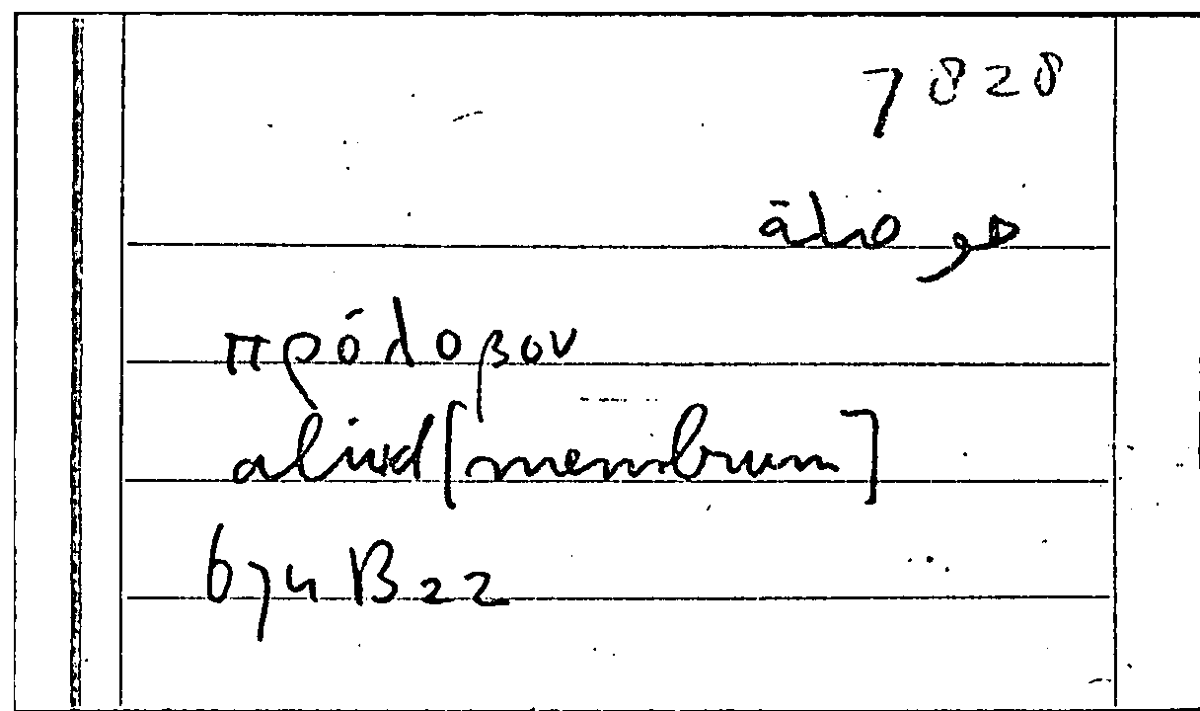 7828
حوصلة
πρόλοβον
aliud [membrum]
674 B 22